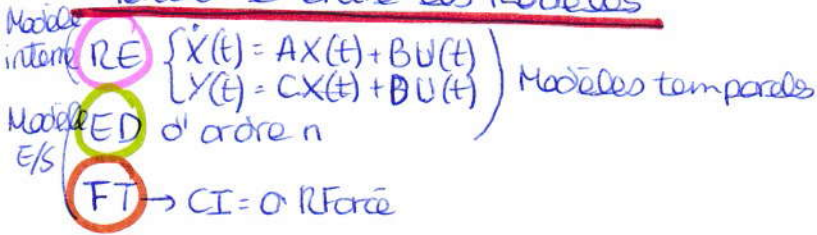 des modèles
Modèle
interne RE { Ẋ(t) = AX(t) + BU(t)
Y(t) = CX(t) + DU(t)
Modèles temporels
Modèle ED d'ordre n
E/S
FT → CI = 0 RForcé